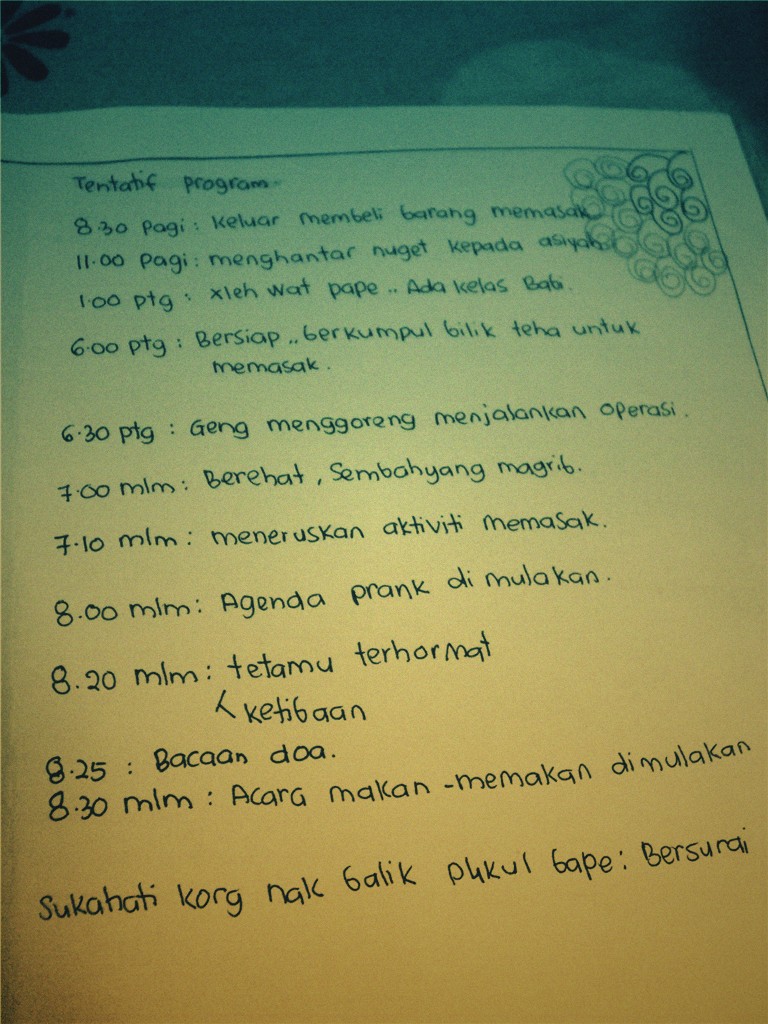 Tentatif program
8.30 pagi : keluar membeli barang memasak
11.00 pagi : menghantar nuget kepada asiyah
1.00 ptg : xleh wat pape .. Ada kelas Babi.
6.00 ptg : Bersiap .. berkumpul bilik teha untuk
memasak.
6.30 ptg : Geng menggoreng menjalankan operasi.
7.00 mlm : Berehat, Sembahyang magrib.
7.10 mlm : meneruskan aktiviti memasak.
8.00 mlm : Agenda prank di mulakan.
8.20 mlm : tetamu terhormat
< ketibaan
8.25 : Bacaan doa.
8.30 mlm : Acara makan-memakan dimulakan
Sukahati korg nak balik pukul bape : Bersurai